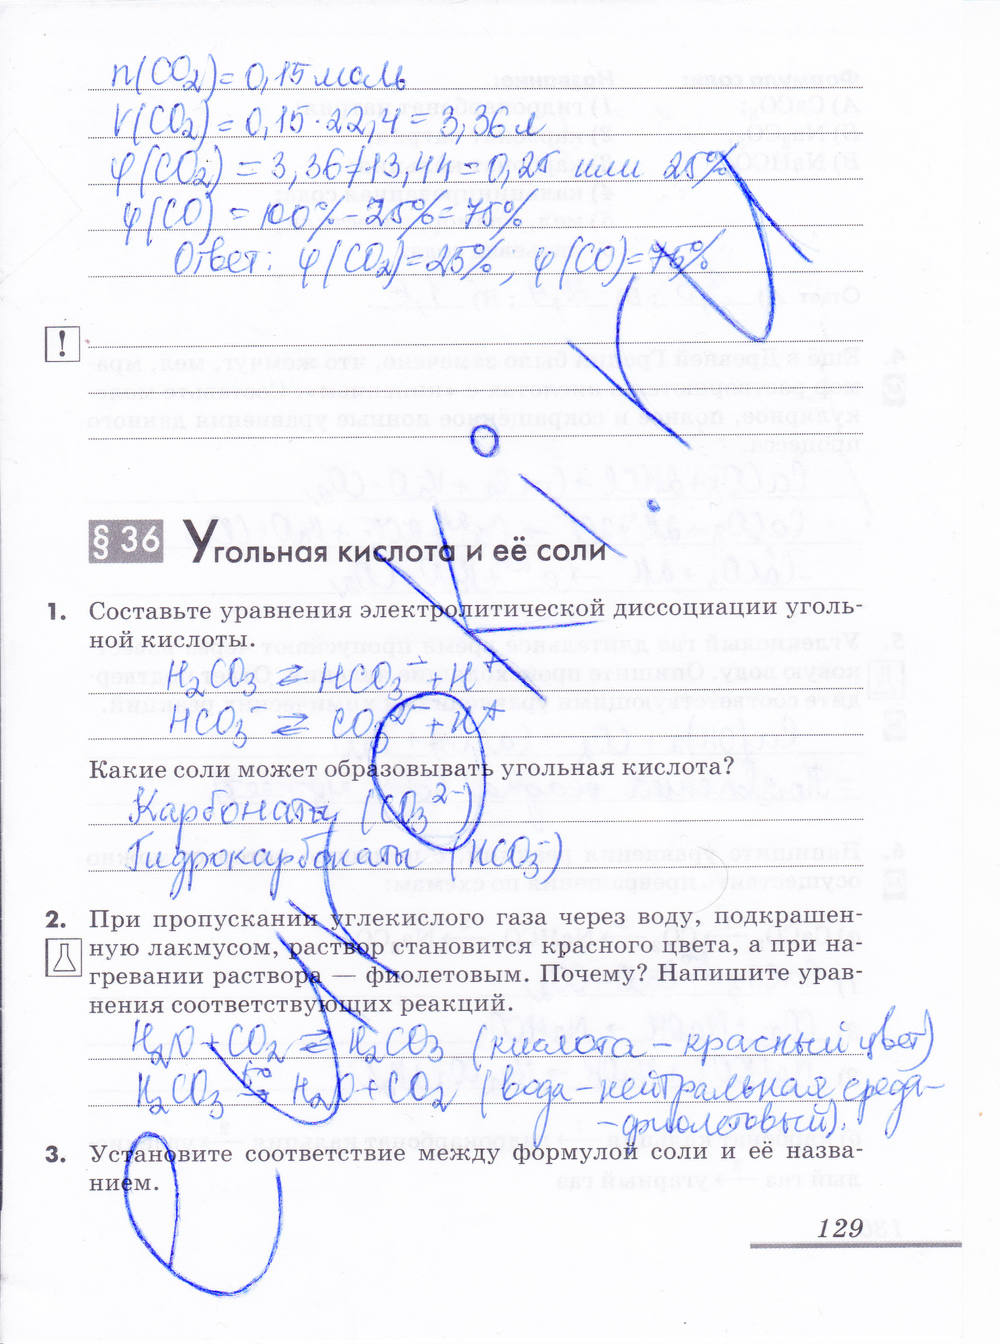 n(CO₂) = 0,15 моль
V(CO₂) = 0,15·22,4 = 3,36 л
φ(CO₂) = 3,36/13,44 = 0,25 или 25%
φ(CO) = 100% - 25% = 75%
Ответ: φ(CO₂) = 25%; φ(CO) = 75%
!
§ 36 Угольная кислота и её соли
1. Составьте уравнения электролитической диссоциации уголь-
ной кислоты.
H₂CO₃ ⇄ HCO₃⁻ + H⁺
HCO₃⁻ ⇄ CO₃²⁻ + H⁺
Какие соли может образовывать угольная кислота?
Карбонаты (CO₃²⁻)
Гидрокарбонаты (HCO₃⁻)
2. При пропускании углекислого газа через воду, подкрашен-
ную лакмусом, раствор становится красного цвета, а при на-
гревании раствора — фиолетовым. Почему? Напишите урав-
нения соответствующих реакций.
H₂O + CO₂ ⇄ H₂CO₃ (кислота - красный цвет)
H₂CO₃ →(t°) H₂O + CO₂ (вода - нейтральная среда -
- фиолетовый).
3. Установите соответствие между формулой соли и её назва-
нием.
129